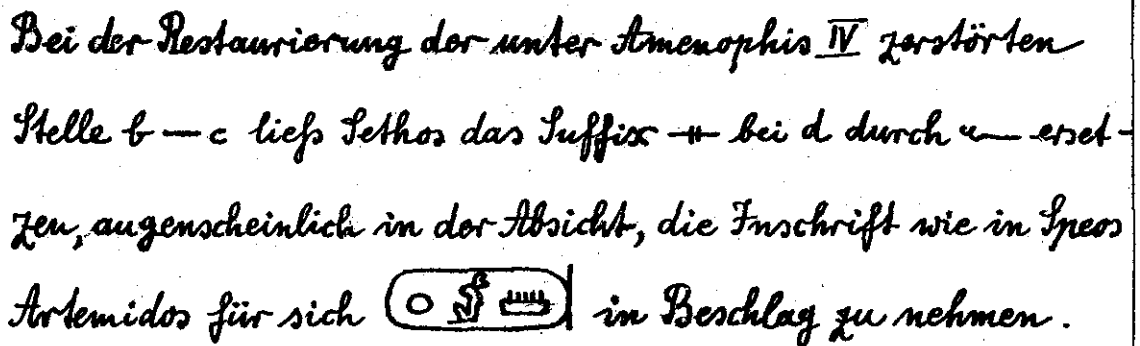 Bei der Restaurierung der unter Amenophis IV zerstörten
Stelle b — c ließ Sethos das Suffix 𓊃 bei d durch 𓆑 erset-
zen, augenscheinlich in der Absicht, die Inschrift wie in Speos
Artemidos für sich (𓇳𓁦𓏠) in Beschlag zu nehmen.